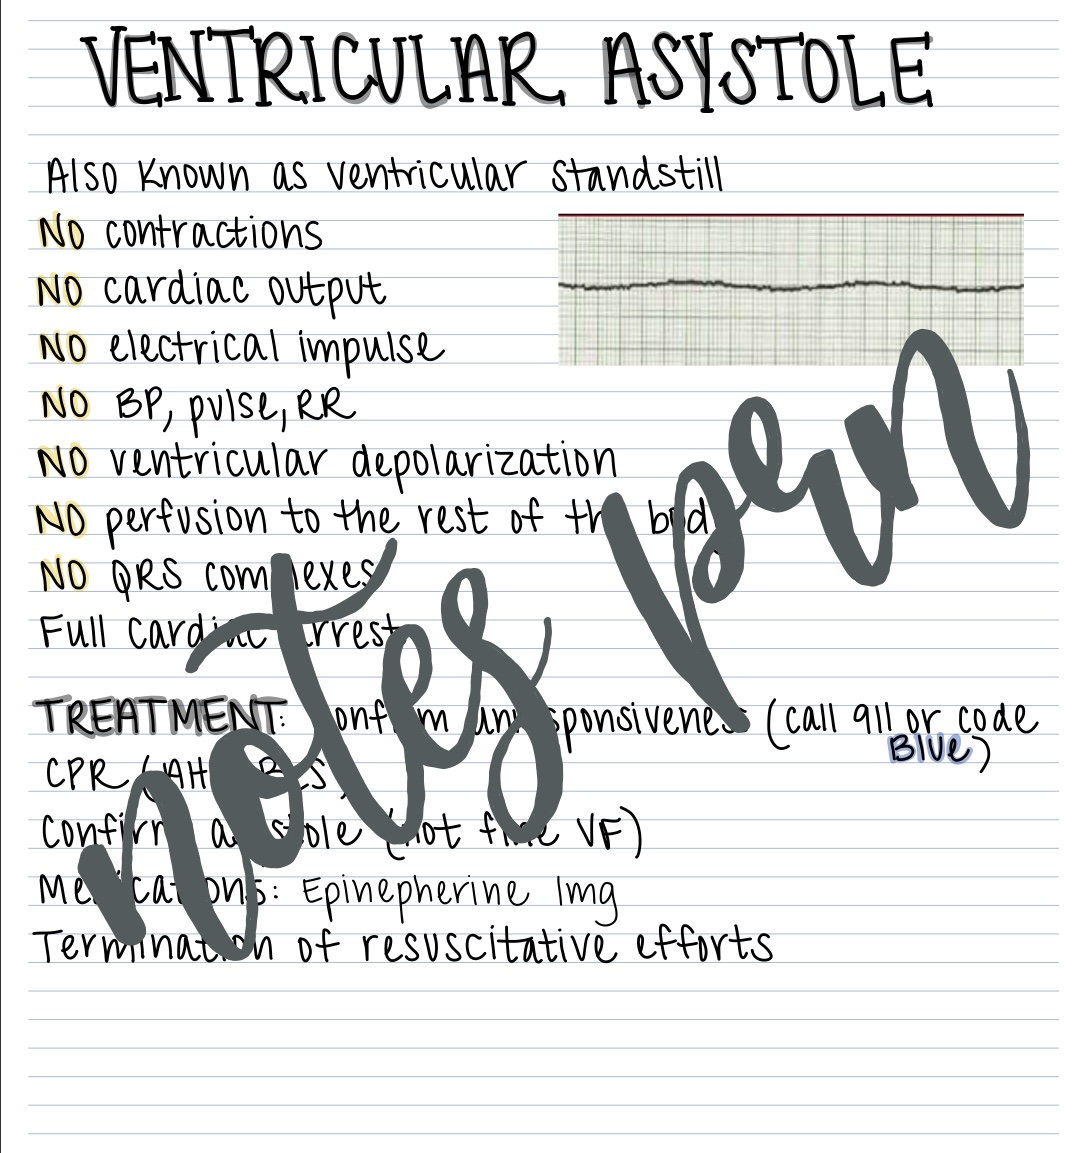 VENTRICULAR ASYSTOLE
Also Known as ventricular standstill
NO contractions
NO cardiac output
NO electrical impulse
NO BP, pulse, RR
NO ventricular depolarization
NO perfusion to the rest of the body
NO QRS complexes
Full Cardiac arrest
TREATMENT: Confirm unresponsiveness (call 911 or code
Blue)
CPR (AHA BLS)
Confirm asystole (not fine VF)
Medications: Epinepherine 1mg
Termination of resuscitative efforts
notes pen